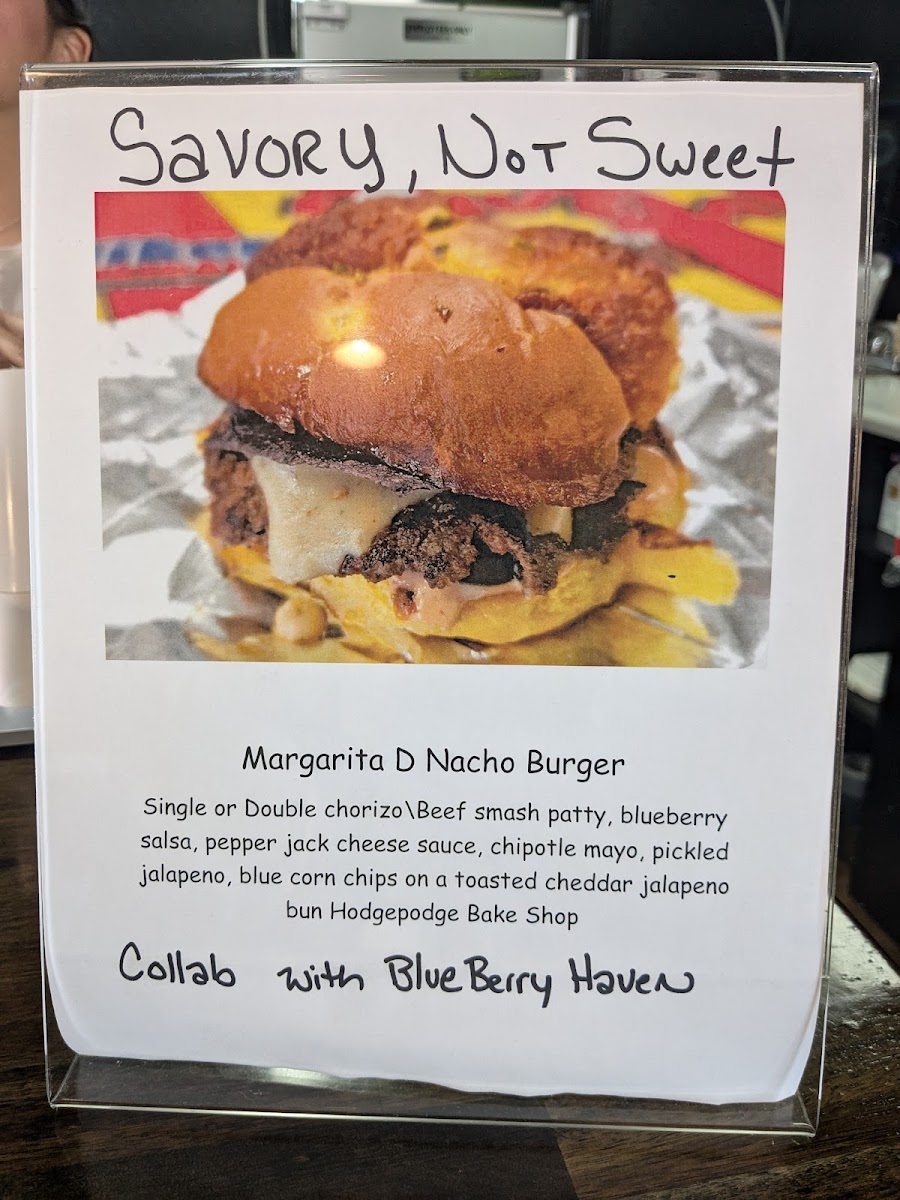 Savory, Not Sweet
Margarita D Nacho Burger
Single or Double chorizo\Beef smash patty, blueberry
salsa, pepper jack cheese sauce, chipotle mayo, pickled
jalapeno, blue corn chips on a toasted cheddar jalapeno
bun Hodgepodge Bake Shop
Collab with BlueBerry Haven